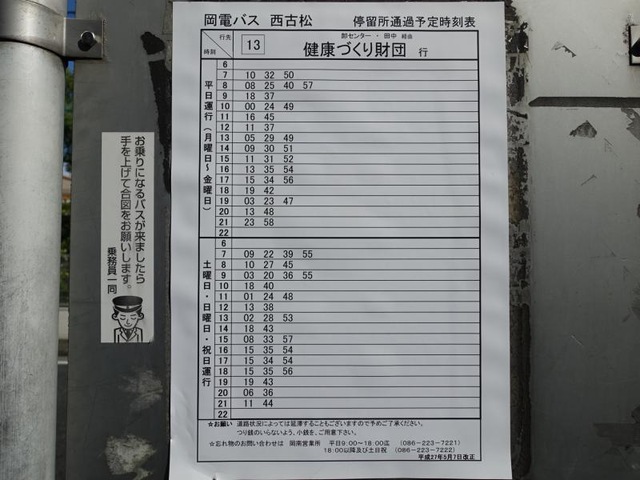 岡電バス 西古松 停留所通過予定時刻表
行先
時刻
13
卸センター・田中 経由
健康づくり財団 行
平日運行(月曜日~金曜日)
6
7 10 32 50
8 08 25 40 57
9 18 37
10 00 24 49
11 16 45
12 11 37
13 05 29 49
14 09 30 51
15 11 31 52
16 13 35 54
17 15 34 56
18 19 42
19 03 23 47
20 13 48
21 23 58
22
土曜日・日曜日・祝日運行
6
7 09 22 39 55
8 10 27 45
9 03 20 36 55
10 18 40
11 01 24 48
12 13 38
13 02 28 53
14 18 43
15 08 33 57
16 15 35 54
17 15 34 54
18 15 35 56
19 19 43
20 06 36
21 11 44
22
☆お願い 道路状況によっては延滞することもございますので予めご了承ください。
つり銭のいらないよう、小銭を、ご用意下さい。
☆忘れ物のお問い合わせは 岡南営業所 平日9:00~18:00迄 (086-223-7221)
18:00以降及び土日祝 (086-223-7222)
平成27年5月7日改正
お乗りになるバスが来ましたら
手を上げて合図をお願いします。
乗務員一同